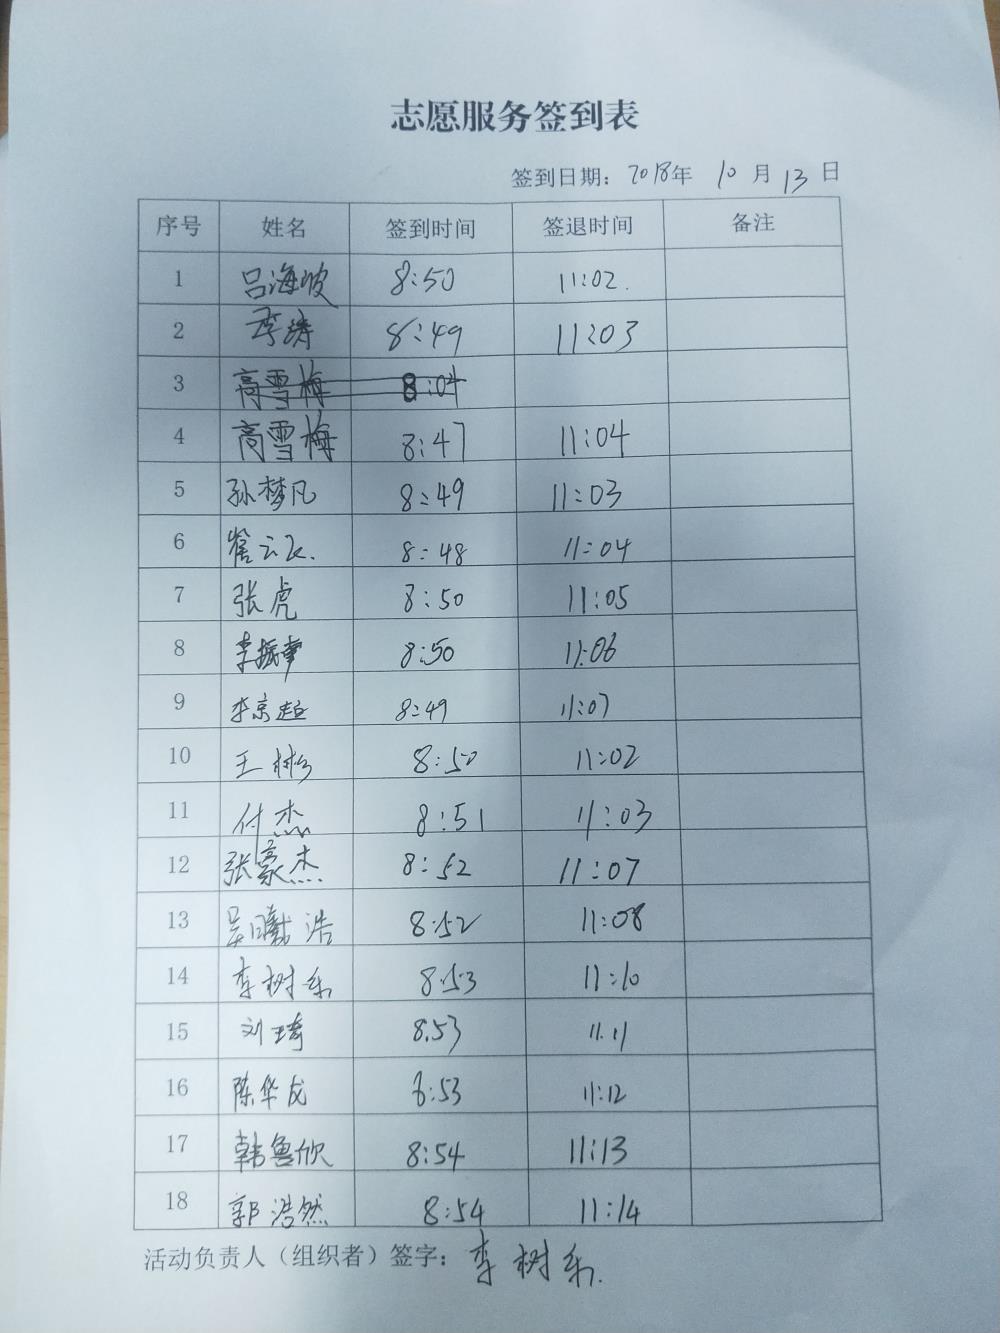 志愿服务签到表
签到日期：2018年 10月13日
序号 姓名 签到时间 签退时间 备注
1 吕海波 8:50 11:02.
2 李涛 8:49 11:03
3 高雪梅 8:04
4 高雪梅 8:47 11:04
5 孙梦凡 8:49 11:03
6 8:48 11:04
7 张虎 8:50 11:05
8 李振 8:50 11:06
9 李京超 8:49 11:07
10 王彬 8:50 11:02
11 付杰 8:51 11:03
12 张豪杰 8:52 11:07
13 吴曦浩 8:52 11:08
14 李树东 8:53 11:10
15 刘琦 8.53 11.11
16 陈华龙 8:53 11:12
17 韩鲁欣 8:54 11:13
18 郭浩然 8:54 11:14
活动负责人（组织者）签字：李树东.